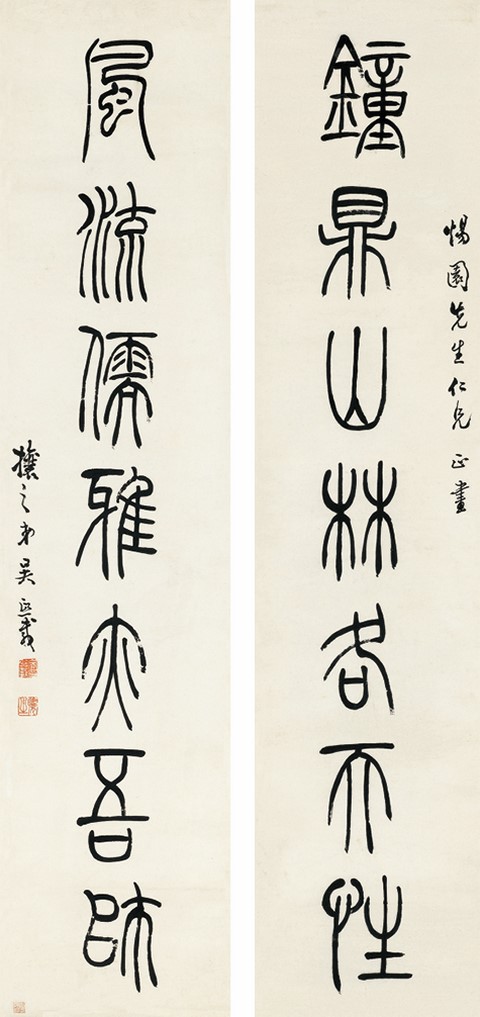 惕園先生仁兄 正書
鐘鼎山林各天性
風流儒雅亦吾師
攘之弟吳熙載